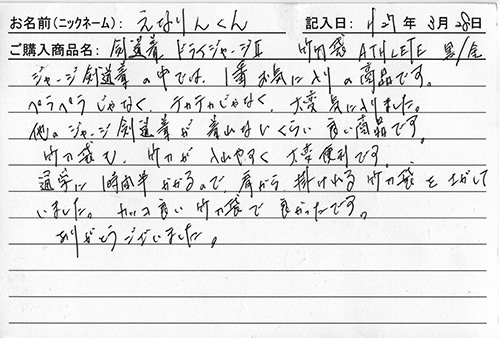 お名前(ニックネーム): えなりんくん 記入日: H27年 3月28日
ご購入商品名: 剣道着 ドライジャージⅡ 竹刀袋 ATHLETE 黒/金
ジャージ剣道着の中では、1番お気に入りの商品です。
ペラペラじゃなく、テカテカじゃなく、大変気に入りました。
他のジャージ剣道着が着れないくらい良い商品です。
竹刀袋も、竹刀が入れやすく大変便利です。
通学に1時間半かかるので、肩から掛けれる竹刀袋をさがして
いました。カッコ良い竹刀袋で良かったです。
ありがとうございました。